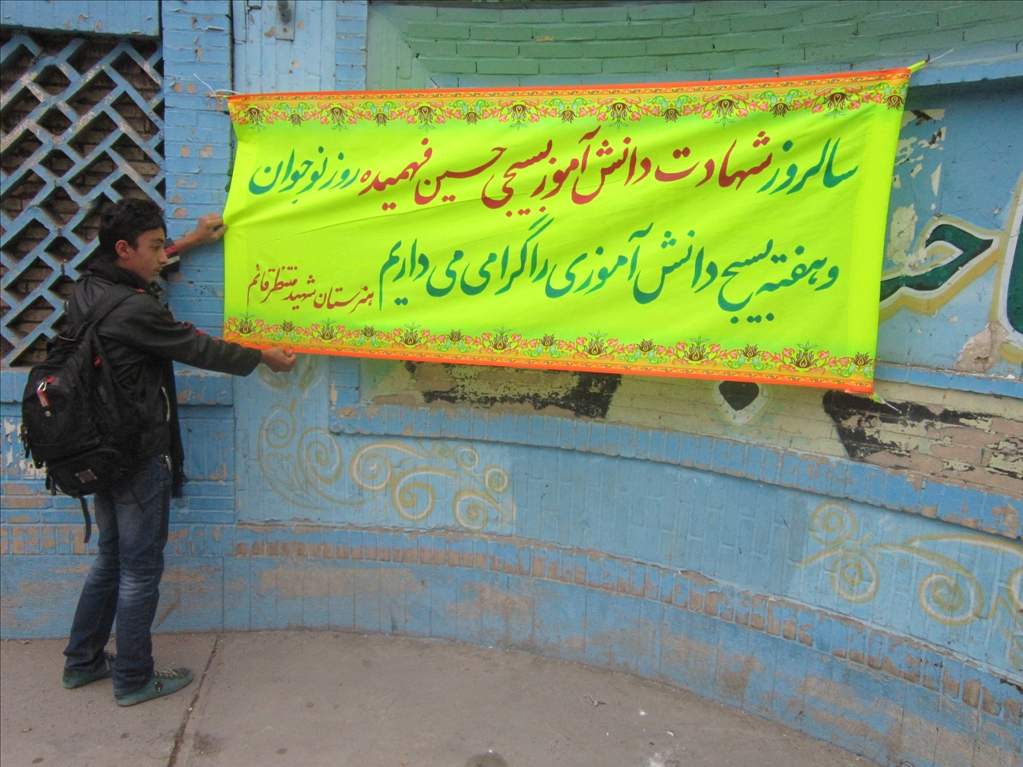 سالروز شهادت دانش آموز بسیجی حسین فهمیده روز نوجوان
و هفته بسیج دانش آموزی را گرامی می داریم
هنرستان شهید منتظر قائم